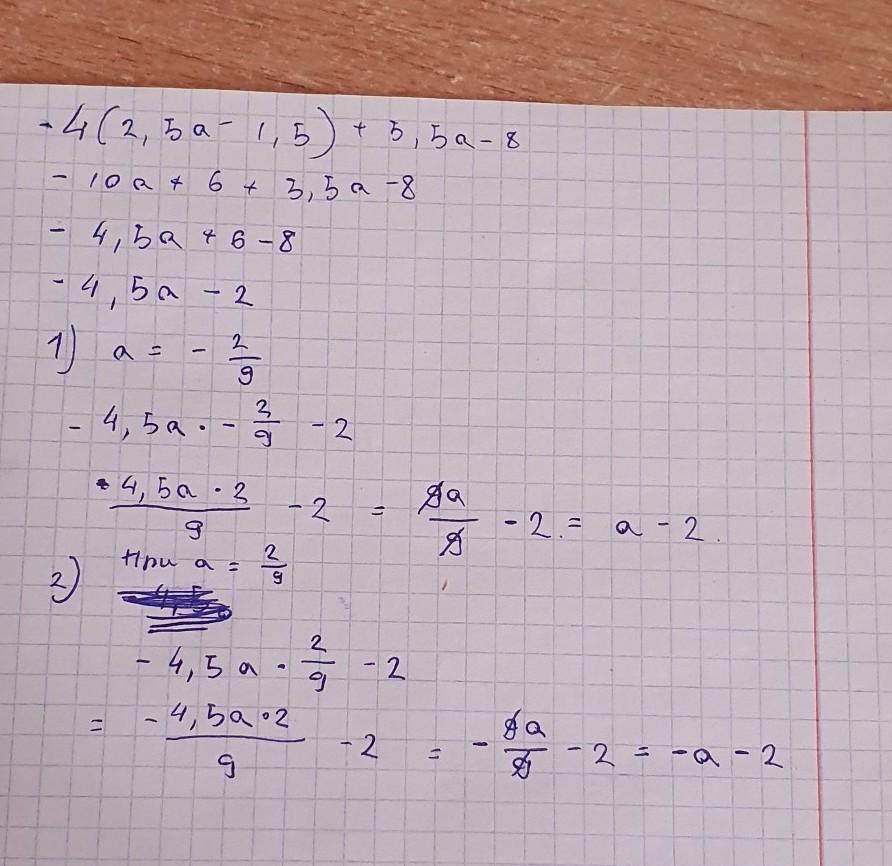 - 4(2,5a - 1,5) + 5,5a - 8
- 10a + 6 + 5,5a - 8
- 4,5a + 6 - 8
- 4,5a - 2
1) a = - 2/9
- 4,5a · - 2/9 - 2
- 4,5a · 2/9 - 2 = 9a/9 - 2 = a - 2.
2) При a = 2/9
- 4,5a · 2/9 - 2
= - 4,5a · 2/9 - 2 = - 9a/9 - 2 = -a - 2